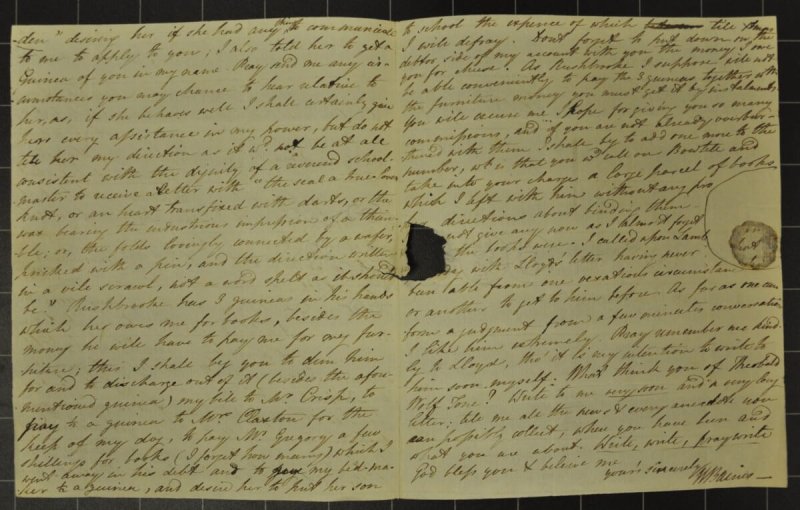 den" desiring her if she had any thing to communicate
to me to apply to you; I also told her to get a
Guinea of you in my name. Pray send me any cir-
cumstances you may chance to hear relative to
her, as, if she behaves well I shall certainly give
her every assistance in my power, but do not
tell her my direction as it wd. not be at all
consistent with the dignity of a reverend school-
master to receive a letter with "the seal a true lovers
knot, or an heart transfixed with darts, or the
wax bearing the industrious impression of a thim-
ble; or, the folds lovingly connected by a wafer,
pricked with a pin, and the direction written
in a vile scrawl, not a word spelt as it should
be." Rushbrooke has 3 guineas in his hands
which he owes me for books, besides the
money he will have to pay me for my fur-
niture; this I shall beg you to dun him
for and to discharge out of it (besides the afore-
mentioned guinea) my bill to Mr. Crisp, to
pay a guinea to Mrs. Claxton for the
keep of my dog, to pay Mr. Gregory a few
shillings for books (I forget how many) which I
went away in his debt and to give my bed-ma-
ker a guinea, and desire her to put her son
to school the expence of which till
I will defray. Dont forget to put down on the
debtor side of my account with you the money I owe
you for cheese. As Rushbrooke I suppose will not
be able conveniently to pay the 3 guineas together with
the furniture money you must get it by instalments,
You will excuse me I hope for giving you so many
commissions, and if you are not already overbur-
thened with them I shall beg to add one more to the
number, wh. is that you wd. call on Bowtell and
take into your charge a large parcel of books
which I left with him without any
directions about binding them
not give any now as I almost forget
the books were. I called upon Lamb
with Lloyd's letter having never
been able from one vexatious circumstance
or another to get to him before. As far as one can
form a judgment from a few minutes conversation
I like him extremely. Pray remember me kind-
ly to Lloyd, tho' it is my intention to write to
him soon myself. What think you of Theobald
Wolf Tone? Write to me very soon and a very long
letter; tell me all the news & every anecdote you
can possibly collect, where you have been and
what you are about. Write, write, pray write
God bless you & believe me
yours sincerely